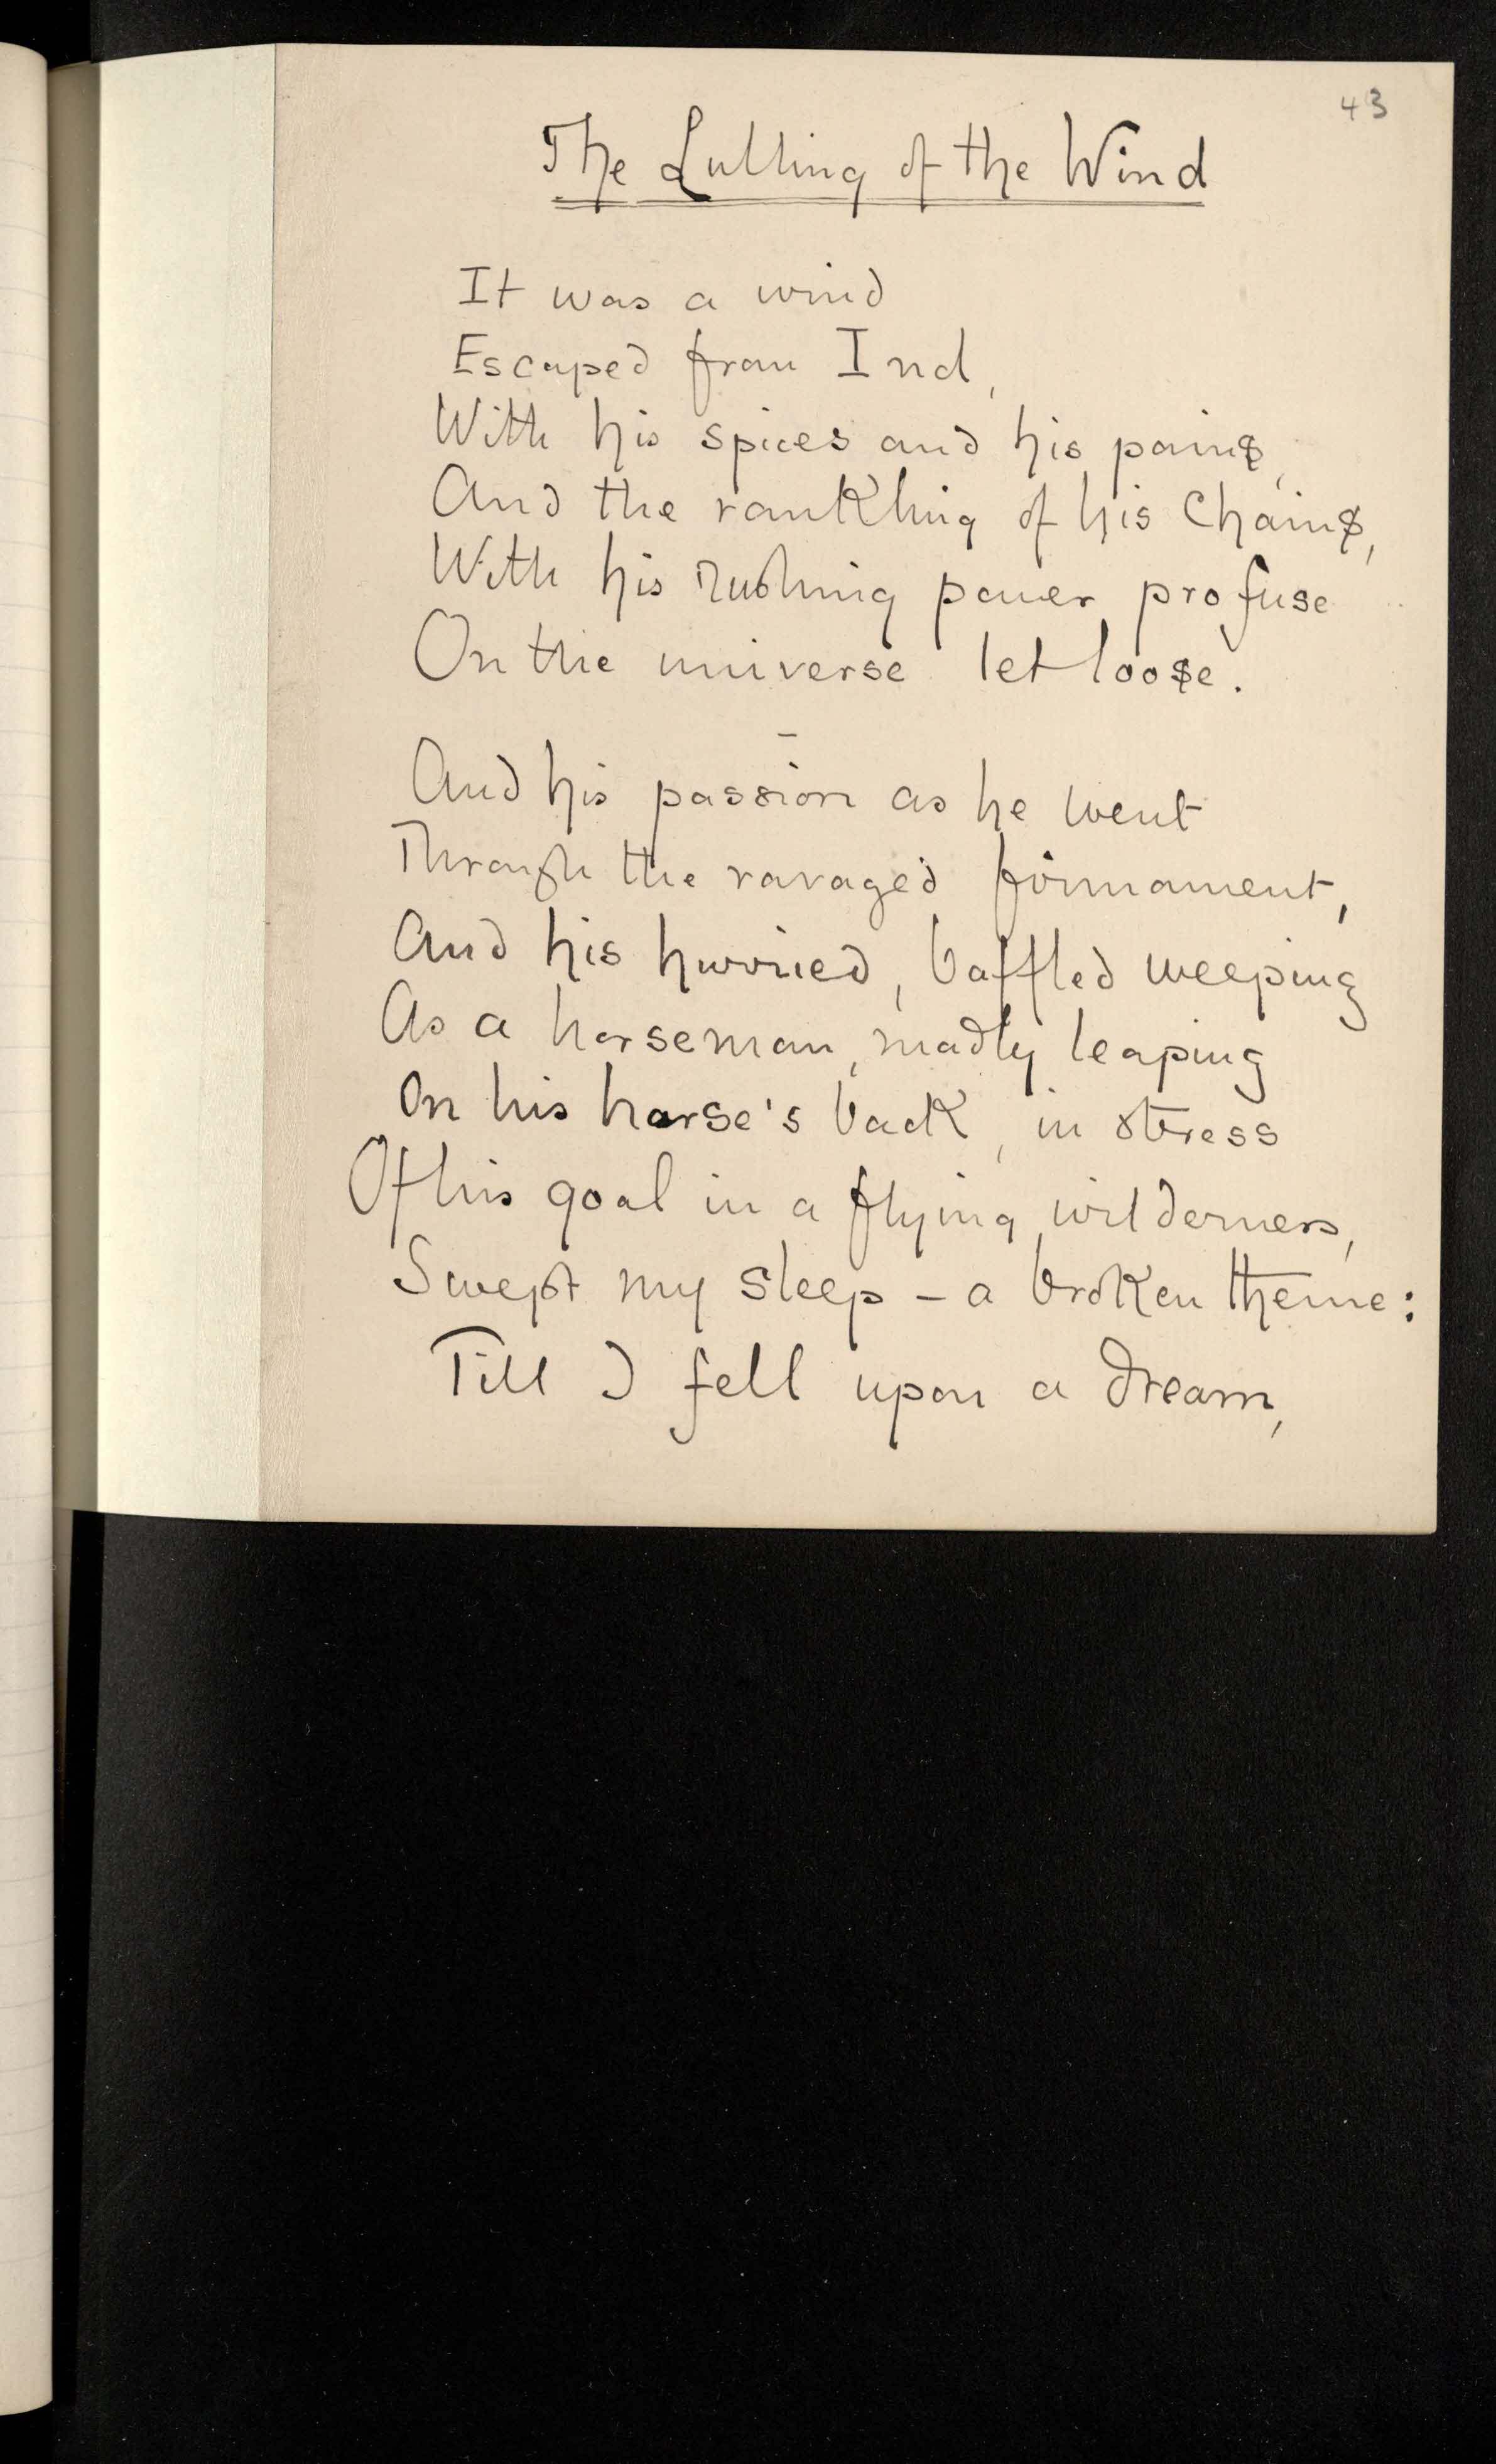 43
The Lulling of the Wind
It was a wind
Escaped from Ind,
With his spices and his pains,
And the rankling of his Chains,
With his rushing power profuse
On the universe let loose.
–
And his passion as he went
Through the ravaged firmament,
And his hurried, baffled weeping
As a horseman, madly leaping
On his horse's back, in stress
Of his goal in a flying wilderness,
Swept my sleep – a broken theme:
Till I fell upon a dream,